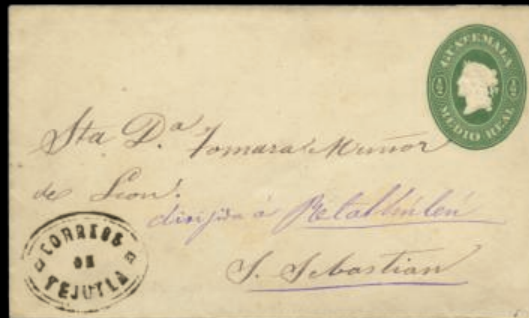 GUATEMALA
½ ½
MEDIO REAL
Sta D.ª Tomasa Muñor
de Leon.
dirijida á Retalhuleu
S. Sebastian
CORREOS
DE
TEJUTLA